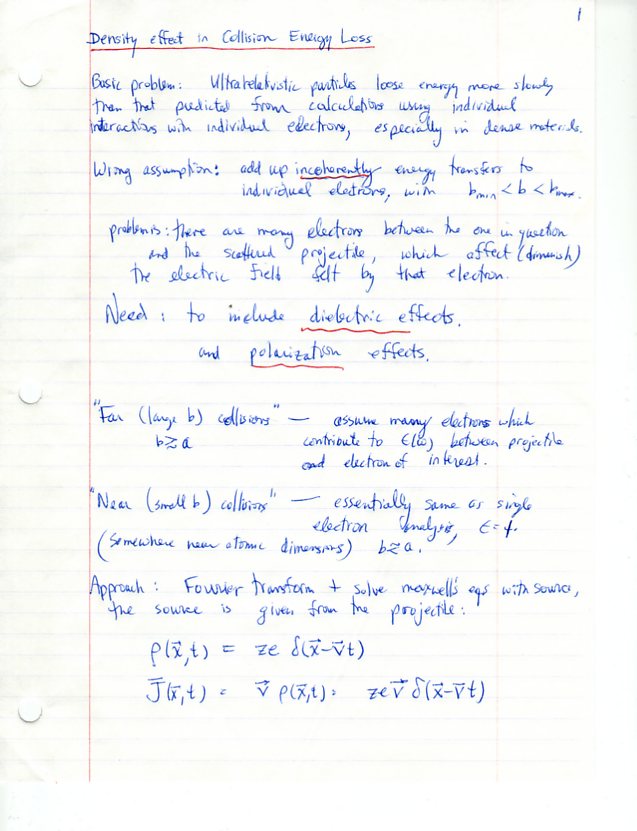 1
Density effect in Collision Energy Loss
Basic problem: Ultrarelativistic particles loose energy more slowly
than that predicted from calculations using individual
interactions with individual electrons, especially in dense materials.
Wrong assumption: add up incoherently energy transfers to
individual electrons, with b_min < b < b_max.
problem is: there are many electrons between the one in question
and the scattered projectile, which affect (diminish)
the electric field felt by that electron.
Need: to include dielectric effects.
and polarization effects.
"Far (large b) collisions" — assume many electrons which
b ≳ a contribute to ε(ω) between projectile
and electron of interest.
"Near (small b) collisions" — essentially same as single
electron analysis, ε = 1.
(Somewhere near atomic dimensions) b ≳ a.
Approach: Fourier transform + solve maxwell's eqs with source,
the source is given from the projectile:
ρ(x⃗,t) = ze δ(x⃗-v⃗t)
J⃗(x⃗,t) = v⃗ ρ(x⃗,t) = zev⃗ δ(x⃗-v⃗t)